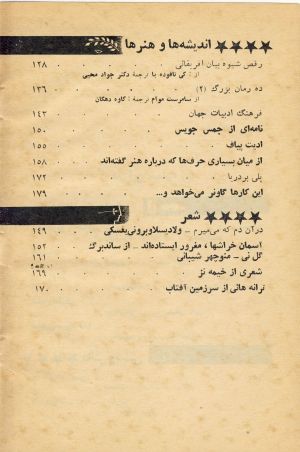 اندیشه‌ها و هنرها
رقص شیوه بیان افریقائی . . . ۱۲۸
از : کی تافوده با ترجمهٔ دکتر جواد محبی
ده رمان بزرگ (۲) . . . ۱۳۶
از : سامرست موام ترجمه : کاوه دهگان
فرهنگ ادبیات جهان . . . ۱۴۳
نامه‌ای از جمس جویس . . . ۱۵۰
ادیت پیاف . . . ۱۵۵
از میان بسیاری حرف‌ها که درباره هنر گفته‌اند . . . ۱۵۸
پلی بردریا . . . ۱۷۲
این کارها گاونر می‌خواهد و... . . . ۱۷۹
شعر
درآن دم که می‌میرم – ولادیسلاوبرونی‌یفسکی . ۱۴۹
آسمان خراشها ، مغرور ایستاده‌اند – از ساندبرگ . ۱۵۲
گل نی – منوچهر شیبانی . . . ۱۶۱
شعری از خیمه نز . . . ۱۶۹
ترانه هائی از سرزمین آفتاب . . . ۱۷۰